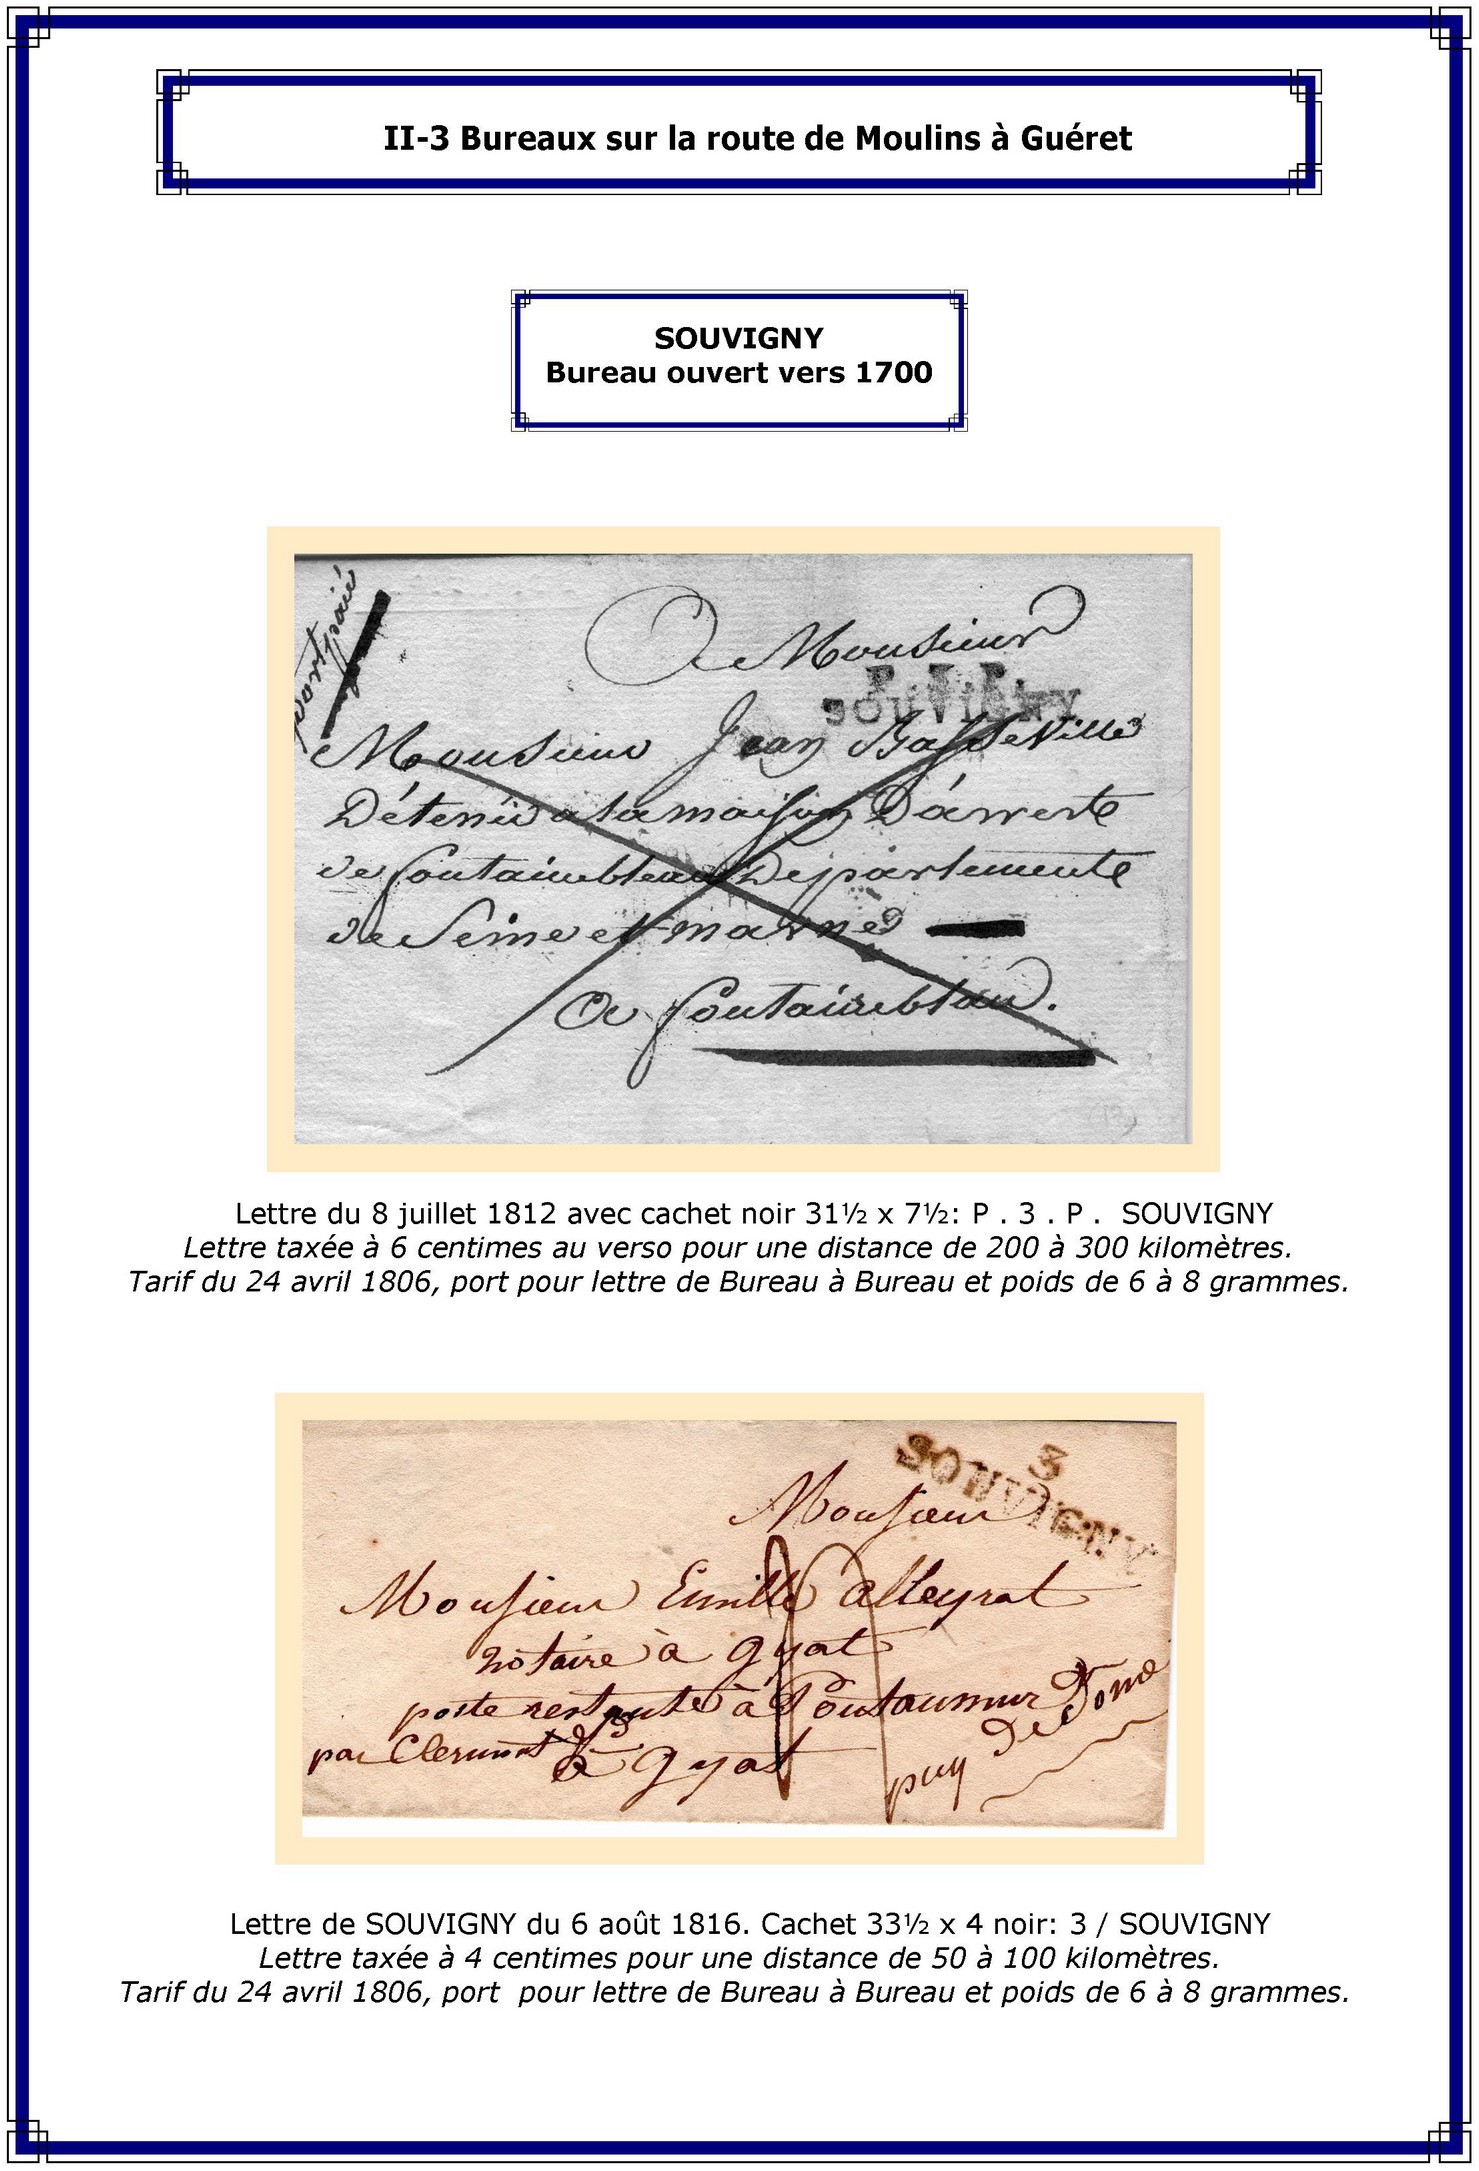 II-3 Bureaux sur la route de Moulins à Guéret
SOUVIGNY
Bureau ouvert vers 1700
port paié
A Monsieur
P. 3. P.
SOUVIGNY
Monsieur Jean Basseville
Détenü a la maison D'arreste
de fontainebleau Departemente
de Seine et marne
A fontainebleau.
Lettre du 8 juillet 1812 avec cachet noir 31½ x 7½: P . 3 . P .  SOUVIGNY
Lettre taxée à 6 centimes au verso pour une distance de 200 à 300 kilomètres.
Tarif du 24 avril 1806, port pour lettre de Bureau à Bureau et poids de 6 à 8 grammes.
3
SOUVIGNY
Monsieur
Monsieur Emille alleyrat
notaire à gyat
poste restante à Pontaumur
par Clermont
puy De Dome
à gyat
Lettre de SOUVIGNY du 6 août 1816. Cachet 33½ x 4 noir: 3 / SOUVIGNY
Lettre taxée à 4 centimes pour une distance de 50 à 100 kilomètres.
Tarif du 24 avril 1806, port  pour lettre de Bureau à Bureau et poids de 6 à 8 grammes.